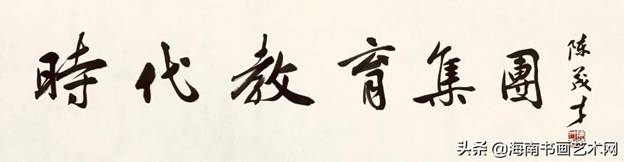 時代教育集團
陈茂才
头条 @海南书画艺术网